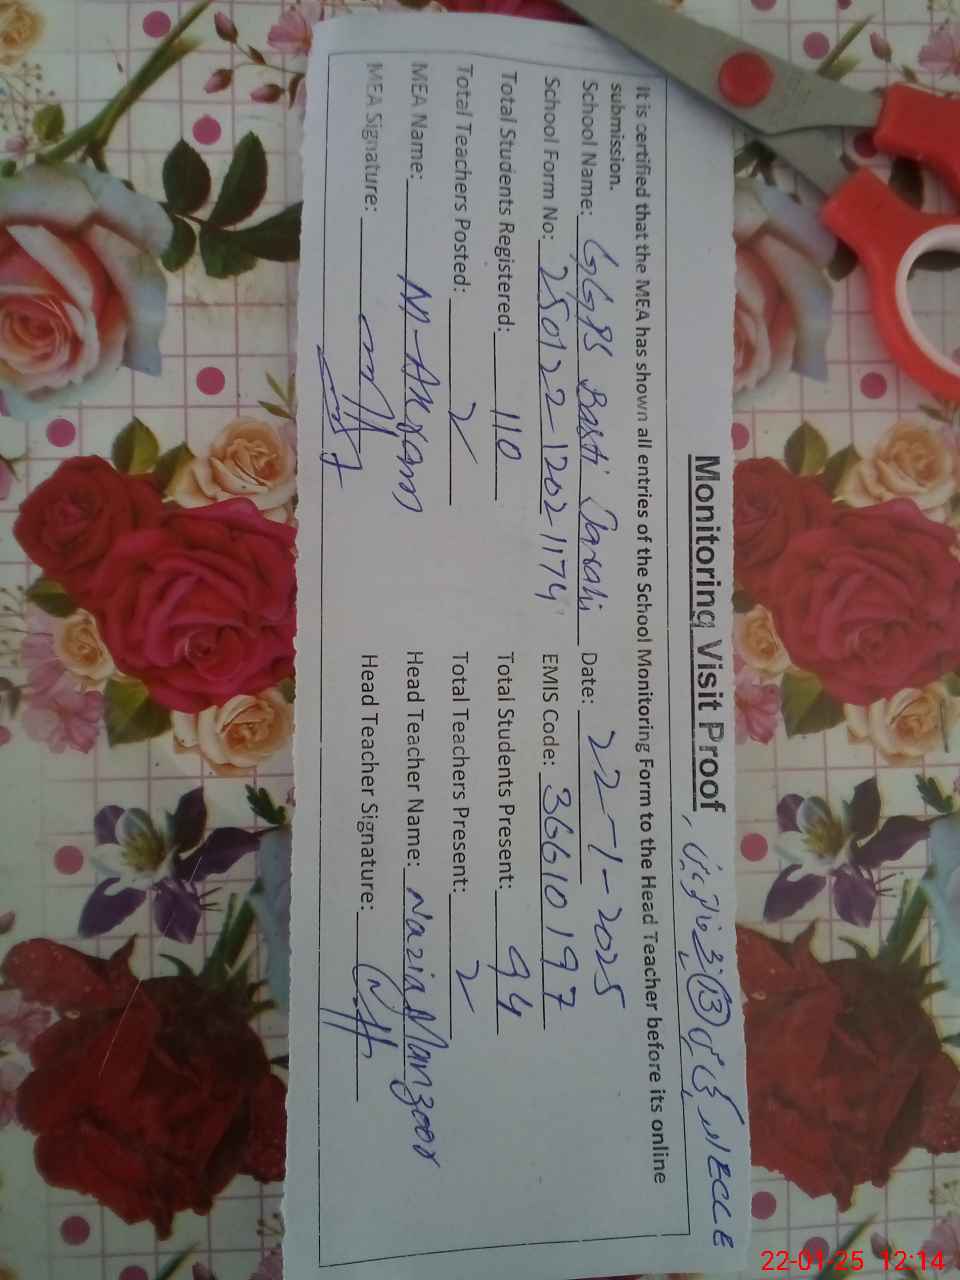 Monitoring Visit Proof, ECCE 13
It is certified that the MEA has shown all entries of the School Monitoring Form to the Head Teacher before its online
submission.
School Name: GGPS Basti Date: 22-1-2025
School Form No: 250122-1202-1174 EMIS Code: 36610197
Total Students Registered: 110 Total Students Present: 94
Total Teachers Posted: 2 Total Teachers Present: 2
MEA Name: M-Akram Head Teacher Name: Nazia Manzoor
MEA Signature: Head Teacher Signature:
22-01-25 12:14